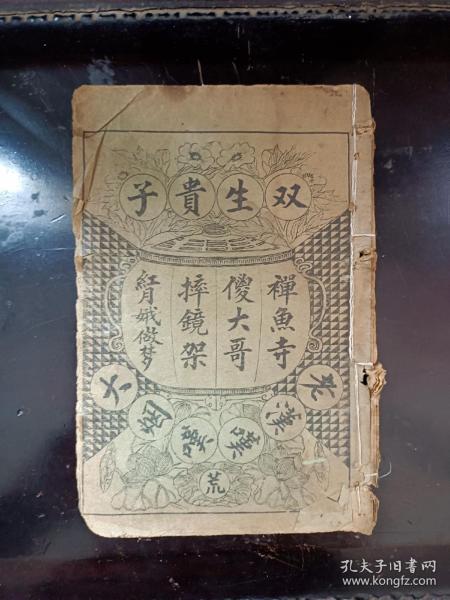 双生貴子
禪魚寺
傻大哥
摔鏡架
紅月娥做梦
老漢嘆
大烟嘆
荒
孔夫子旧书网
www.kongfz.com